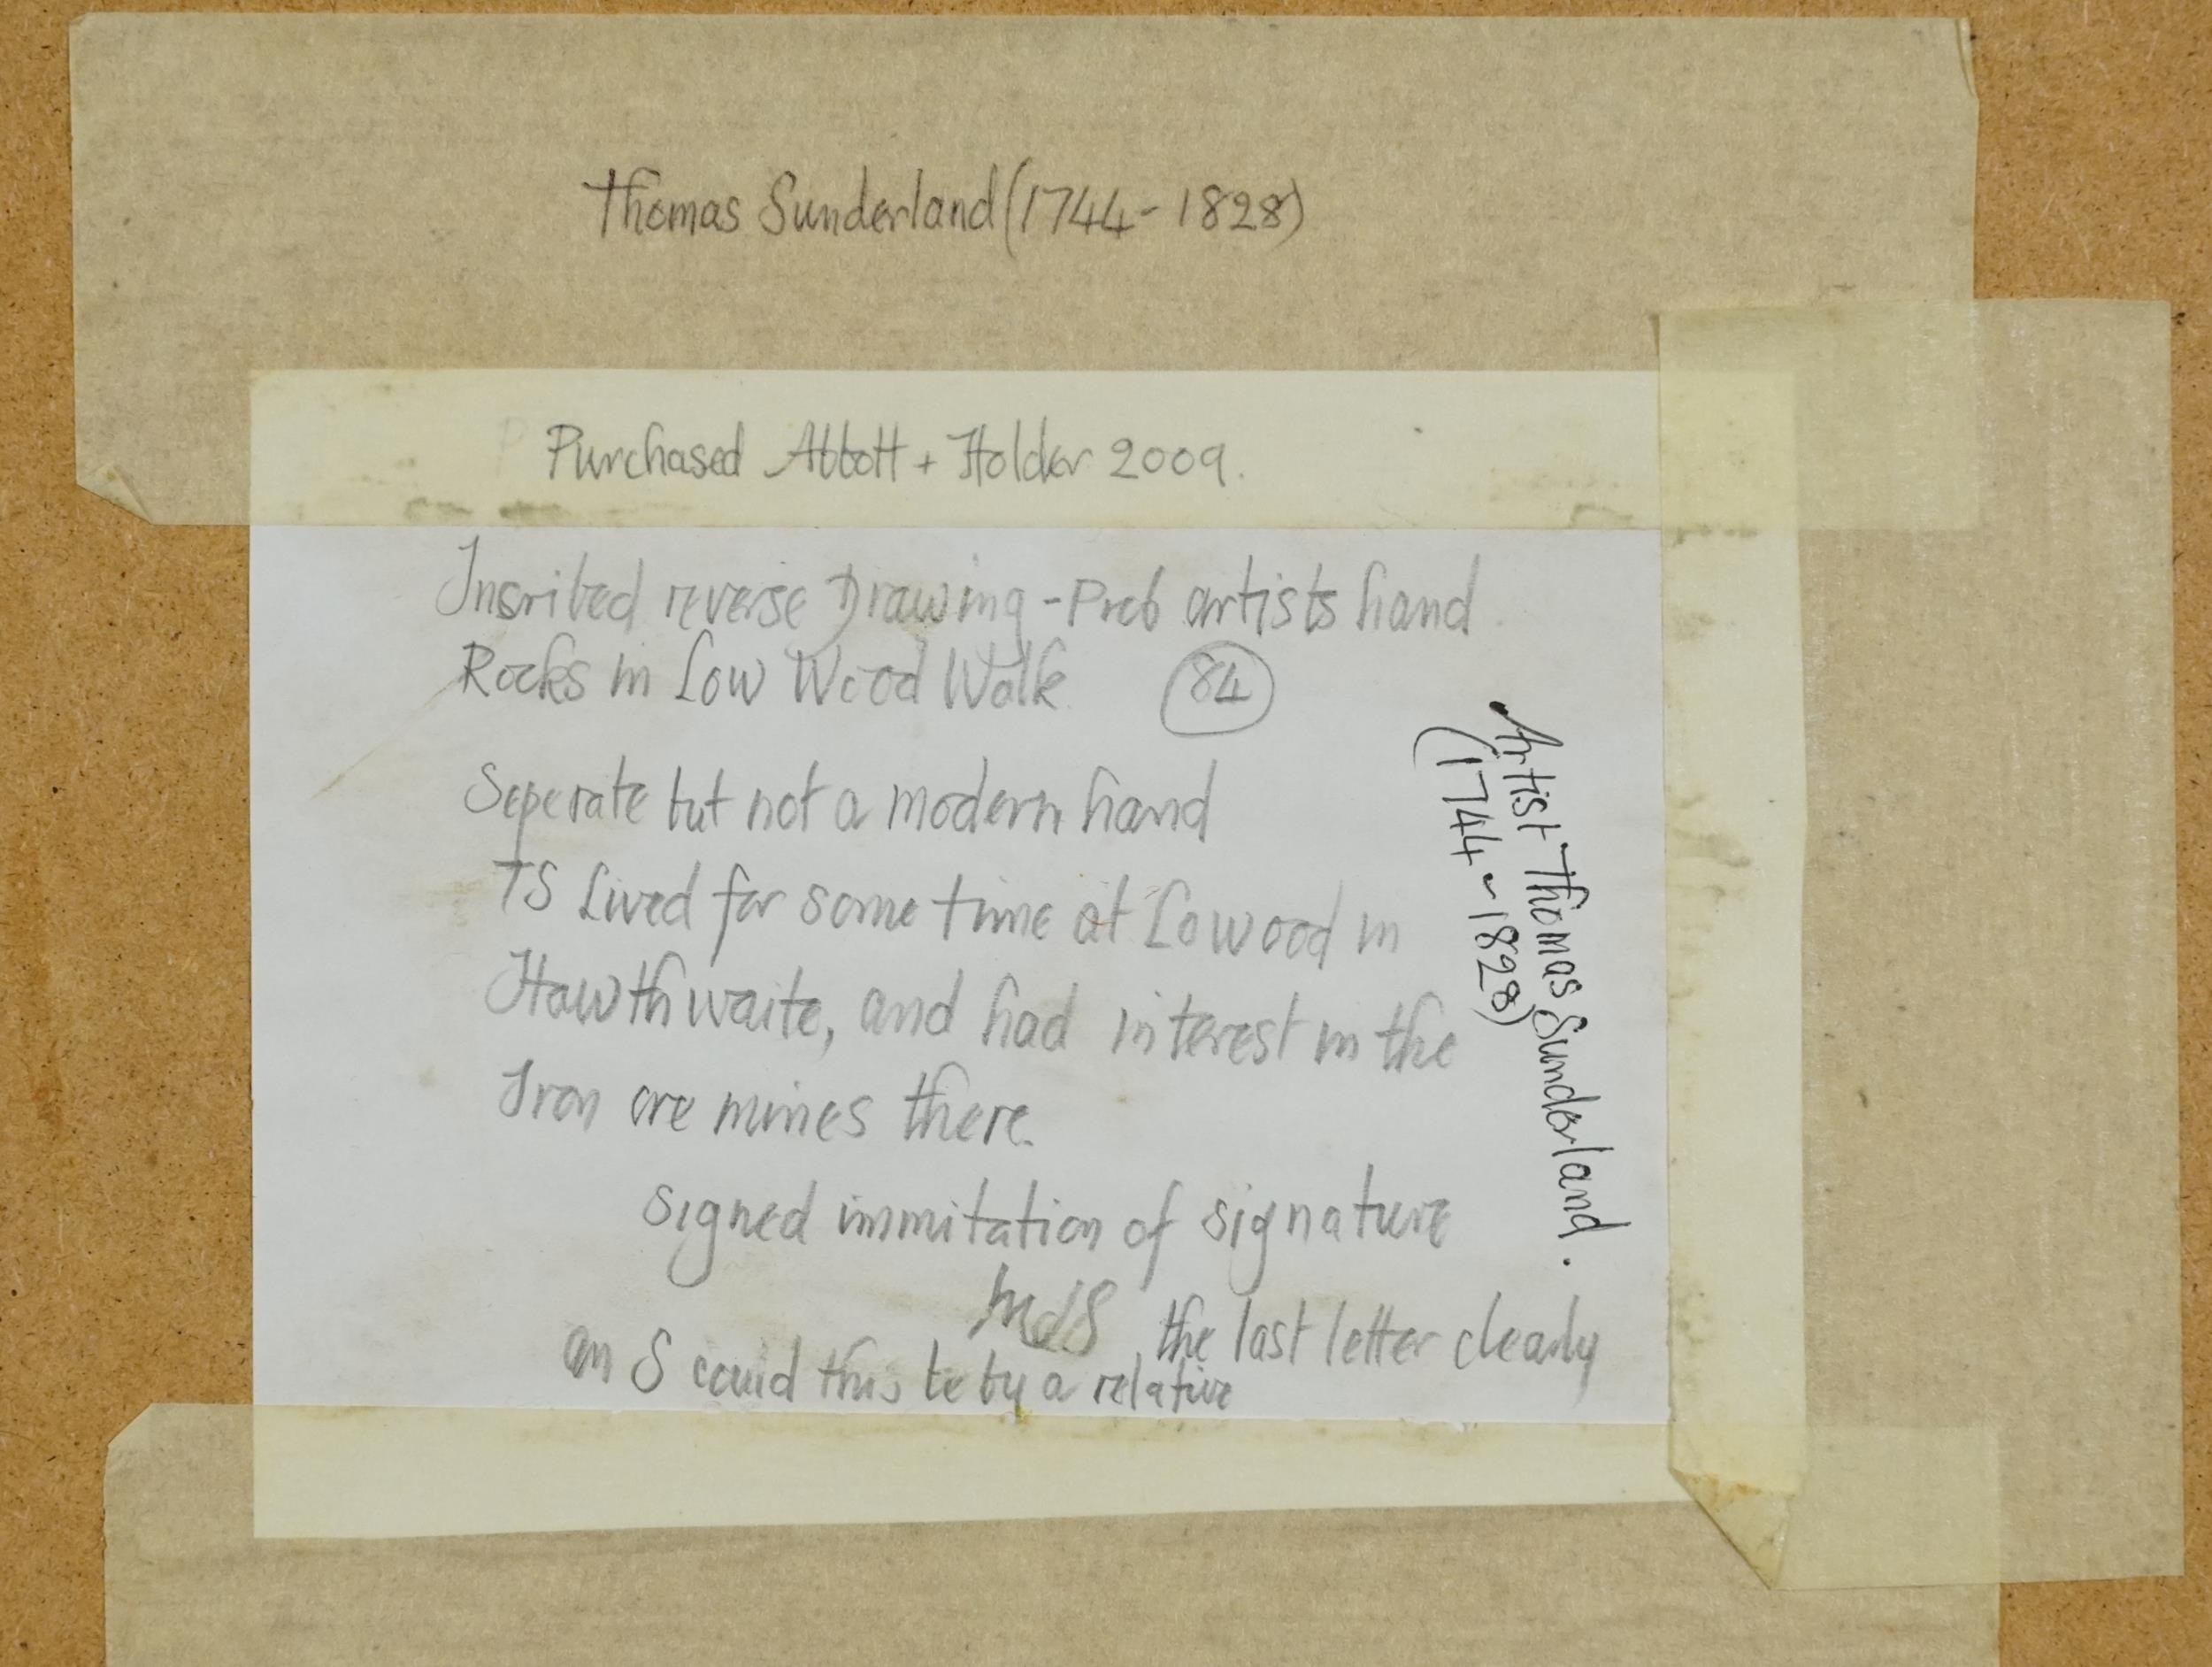 Thomas Sunderland (1744-1828)
Purchased Abbott + Holder 2009.
Inscribed reverse Drawing - Prob artists hand
Rocks in Low Wood Walk 84
Seperate but not a modern hand
TS Lived for some time at Lowood in
Hawthwaite, and had interest in the
Iron ore mines there.
signed immitation of signature
the last letter clearly
an S could this be by a relative
Artist Thomas Sunderland.
(1744-1828)